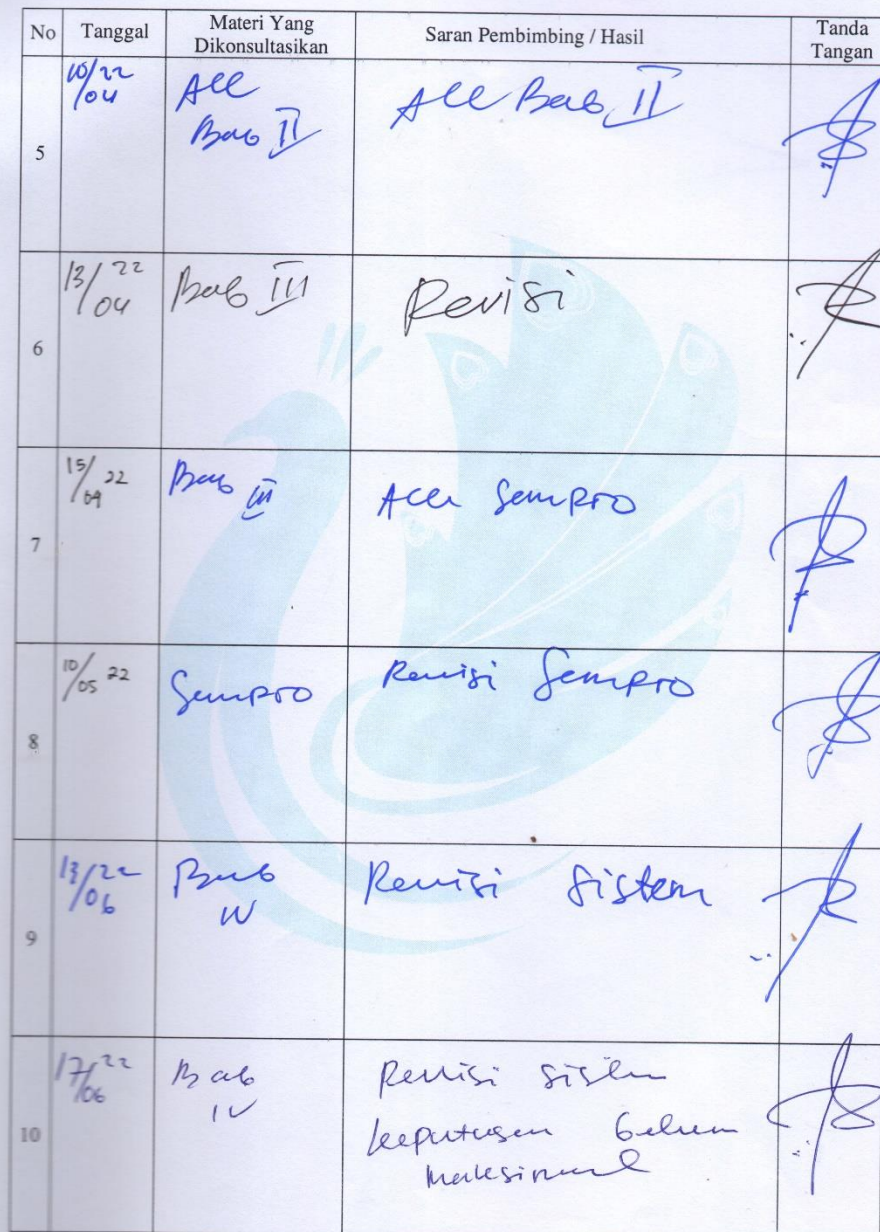 No Tanggal Materi Yang Dikonsultasikan Saran Pembimbing / Hasil Tanda Tangan
5 10/04 22 Acc Bab II Acc Bab II
6 13/04 22 Bab III Revisi
7 15/04 22 Bab III Acc Sempro
8 10/05 22 Sempro Revisi Sempro
9 13/06 22 Bab IV Revisi Sistem
10 17/06 22 Bab IV Revisi sistem
keputusan belum
maksimal